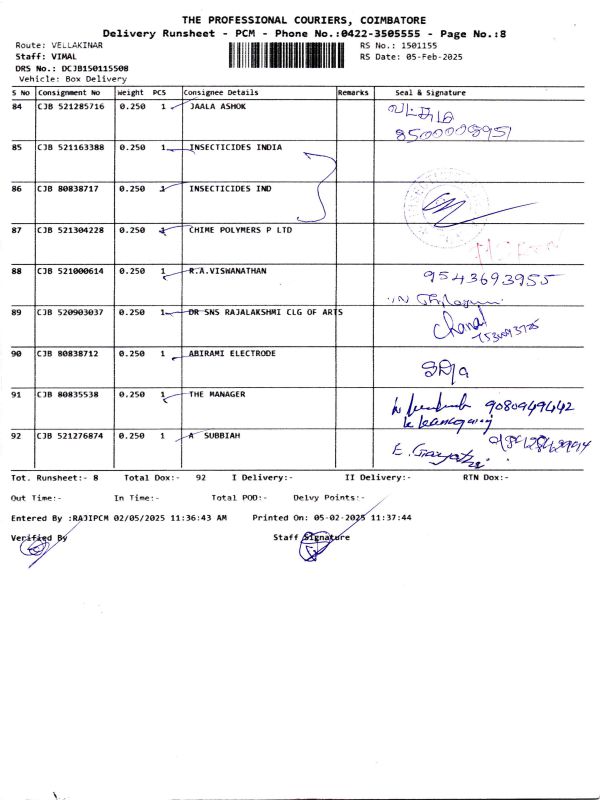 THE PROFESSIONAL COURIERS, COIMBATORE
Delivery Runsheet - PCM - Phone No.:0422-3505555 - Page No.:8
Route: VELLAKINAR RS No.: 1501155
Staff: VIMAL RS Date: 05-Feb-2025
DRS No.: DCJB150115508
Vehicle: Box Delivery
S No Consignment No Weight PCS Consignee Details Remarks Seal & Signature
84 CJB 521285716 0.250 1 JAALA ASHOK
85 CJB 521163388 0.250 1 INSECTICIDES INDIA
86 CJB 80838717 0.250 1 INSECTICIDES IND
87 CJB 521304228 0.250 1 CHIME POLYMERS P LTD
88 CJB 521000614 0.250 1 R.A.VISWANATHAN 9543693955
89 CJB 520903037 0.250 1 DR SNS RAJALAKSHMI CLG OF ARTS
90 CJB 80838712 0.250 1 ABIRAMI ELECTRODE
91 CJB 80835538 0.250 1 THE MANAGER 9080949442
92 CJB 521276874 0.250 1 A SUBBIAH
Tot. Runsheet:- 8 Total Dox:- 92 I Delivery:- II Delivery:- RTN Dox:-
Out Time:- In Time:- Total POD:- Delvy Points:-
Entered By :RAJIPCM 02/05/2025 11:36:43 AM Printed On: 05-02-2025 11:37:44
Verified By Staff Signature